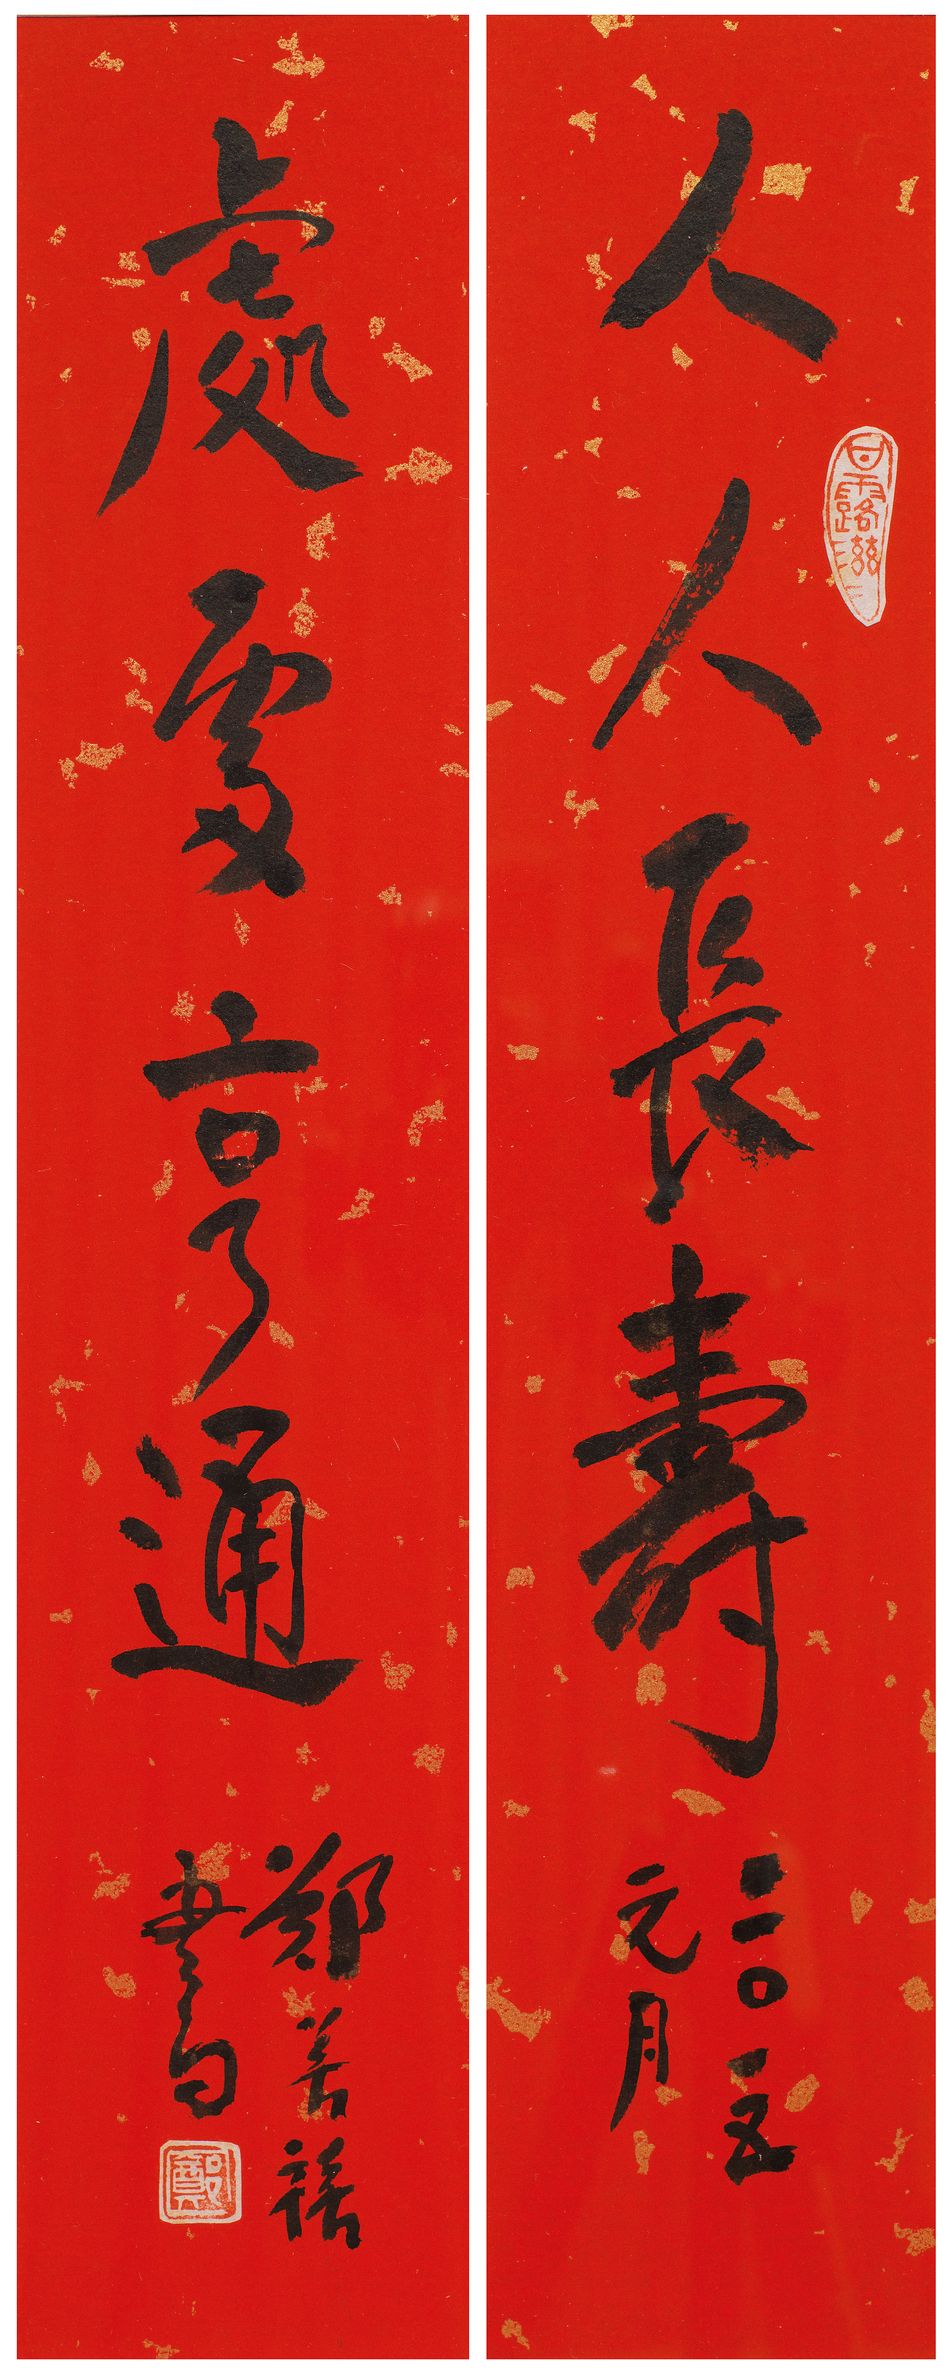 人人長壽
甘露滋
二〇一五
元月
處處亨通
鄭善禧
鄭